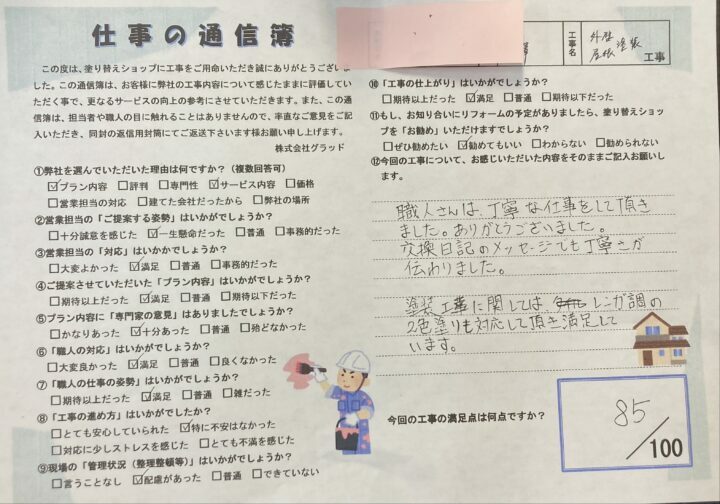 仕事の通信簿
工事名
外壁
屋根 塗装
工事
この度は、塗り替えショップに工事をご用命いただき誠にありがとうございま
した。この通信簿は、お客様に弊社の工事内容について感じたままに評価してい
ただく事で、更なるサービスの向上の参考にさせていただきます。また、この通
信簿は、担当者や職人の目に触れることはありませんので、率直なご意見をご記
入いただき、同封の返信用封筒にてご返送下さいます様お願い申し上げます。
株式会社グラッド
①弊社を選んでいただいた理由は何ですか?(複数回答可)
☑プラン内容 □評判 □専門性 ☑サービス内容 □価格
□営業担当の対応 □建てた会社だったから □弊社の場所
②営業担当の「ご提案する姿勢」はいかがでしょうか?
□十分誠意を感じた ☑一生懸命だった □普通 □事務的だった
③営業担当の「対応」はいかかでしょうか?
□大変よかった ☑満足 □普通 □事務的だった
④ご提案させていただいた「プラン内容」はいかがでしょうか?
□期待以上だった ☑満足 □普通 □期待以下だった
⑤プラン内容に「専門家の意見」はありましたでしょうか?
□かなりあった ☑十分あった □普通 □殆どなかった
⑥「職人の対応」はいかがでしょうか?
□大変良かった ☑満足 □普通 □良くなかった
⑦「職人の仕事の姿勢」はいかがでしょうか?
□期待以上だった ☑満足 □普通 □雑だった
⑧「工事の進め方」はいかがでしたか?
□とても安心していられた ☑特に不安はなかった
□対応に少しストレスを感じた □とても不満を感じた
⑨現場の「管理状況(整理整頓等)」はいかがでしょうか?
□言うことなし ☑配慮があった □普通 □できていない
⑩「工事の仕上がり」はいかがでしょうか?
□期待以上だった ☑満足 □普通 □期待以下だった
⑪もし、お知り合いにリフォームの予定がありましたら、塗り替えショッ
プを「お勧め」いただけますでしょうか?
□ぜひ勧めたい ☑勧めてもいい □わからない □勧められない
⑫今回の工事について、お感じいただいた内容をそのままご記入お願いし
ます。
職人さんは、丁寧な仕事をして頂き
ました。ありがとうございました。
交換日記のメッセージでも丁寧さが
伝わりました。
塗装工事に関しては レンガ調の
2色塗りも対応して頂き満足して
います。
今回の工事の満足点は何点ですか?
85
/100